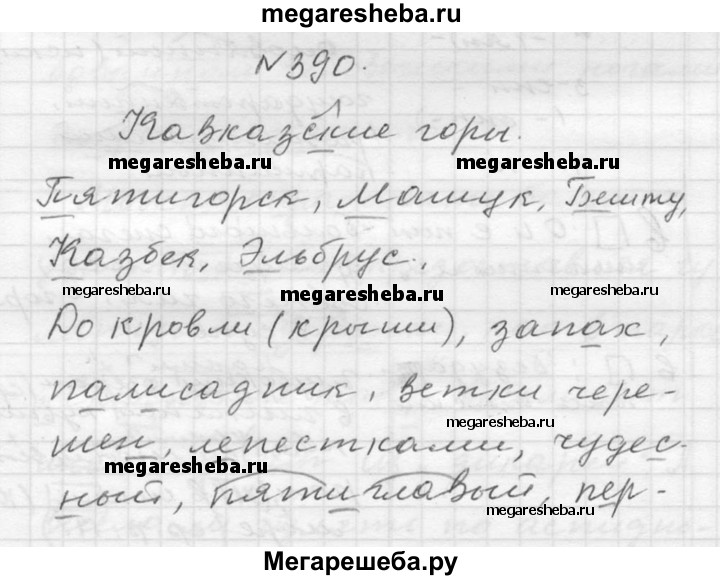 megaresheba.ru
№390.
Кавказские горы.
megaresheba.ru megaresheba.ru
Пятигорск, Машук, Бешту,
Казбек, Эльбрус.,
megaresheba.ru megaresheba.ru megaresheba.ru
До кровли (крыши), запах,
палисадник, ветки чере-
megaresheba.ru
шен, лепестками, чудес-
megaresheba.ru
ный, пятиглавый, пер-
megaresheba.ru
Мегарешеба.ру